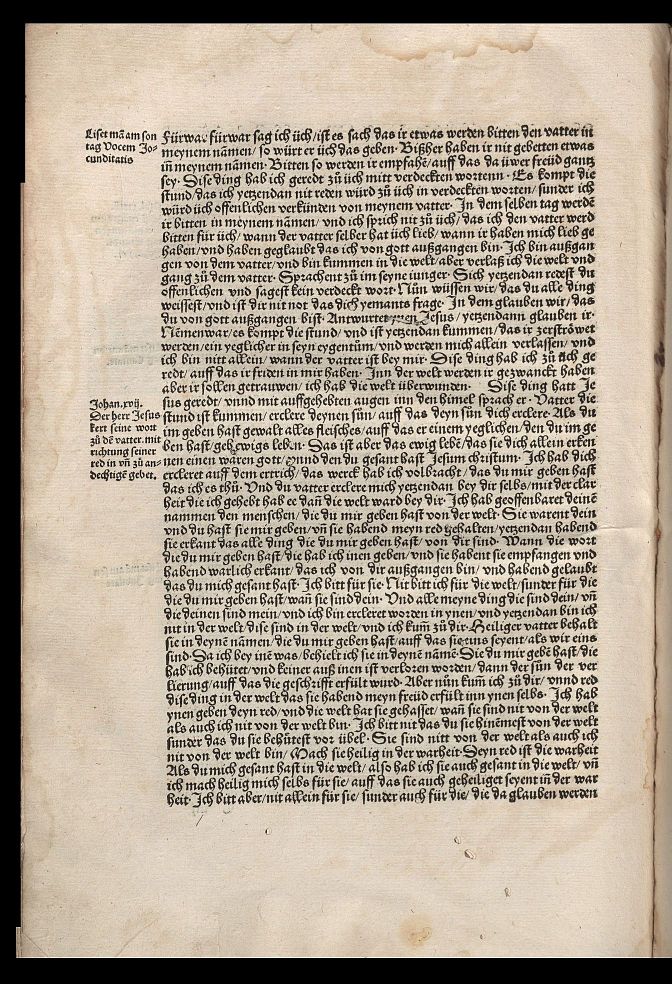 Liset mā am son
tag Vocem Joc
cunditatis
Fürwar fürwar sag ich üch/ ist es sach das ir etwas werden bitten den vatter in
meynem nāmen/ so würt er üch das geben· Bißher haben ir nit gebetten etwas
iñ meynem nāmen· Bitten so werden ir empfahē/ auff das da üwer freüd gantz
sey· Dise ding hab ich geredt zů üch mitt verdeckten wortenn· Es kompt die
stund/ das ich yetzendan nit reden würd zů üch in verdeckten worten/ sunder ich
würd üch offenlichen verkünden von meynem vatter· In dem selben tag werdē
ir bitten in meynem nāmen/ vnd ich sprich nit zů üch/ das ich den vatter werd
bitten für üch/ wann der vatter selber hat üch lieb/ wann ir haben mich lieb ge
haben/ vnd haben geglaubt das ich von gott außgangen bin· Ich bin außgan
gen von dem vatter/ vnd bin kummen in die welt/ aber verlaß ich die welt vnd
gang zů dem vatter· Sprachent zů im seyne iunger· Sich yetzendan redest du
offenlichen vnd sagest kein verdeckt wort· Nůn wüssen wir/ das du alle ding
weissest/ vnd ist dir nit not das dich yemants frage· In dem glauben wir/ das
du von gott außgangen bist· Antwurtet Jesus/ yetzendann glauben ir·
Nēmenwar/ es kompt die stund/ vnd ist yetzendan kummen/ das ir zerströwet
werden/ ein yeglicher in seyn eygentům/ vnd werden mich allein verlassen/ vnd
ich bin nitt allein/ wann der vatter ist bey mir· Dise ding hab ich zů üch ge
redt/ auff das ir friden in mir haben· Inn der welt werden ir gezwanckt haben
aber ir sollen getrauwen/ ich hab die welt überwunden· Dise ding hatt Je
Johan.xvij.
Der herr Jesus
kert seine wort
zů dē vatter.mit
richtung seiner
red in vñ zů an⸗
dechtigē gebet.
sus geredt/ vnnd mit auffgehebten augen inn den himel sprach er· Vatter die
stund ist kummen/ erclere deynen sůn/ auff das deyn sůn dich erclere· Als du
im geben hast gewalt alles fleisches/ auff das er einem yeglichen/ den du im ge
ben hast/ geb ewigs leben· Das ist aber das ewig lebē/ das sie dich allein erken
nen einen wāren gott/ vnnd den du gesant hast Jesum christum· Ich hab dich
ercleret auff dem ertrich/ das werck hab ich volbracht/ das du mir geben hast
das ich es thů· Vnd du vatter erclere mich yetzendan bey dir selbs/ mit der clar
heit die ich gehebt hab ee dañ die welt ward bey dir· Ich hab geoffenbaret deinē
nammen den menschen/ die du mir geben hast von der welt· Sie warent dein
vnd du hast sie mir geben/ vñ sie habend meyn red gehalten/ yetzendan habend
sie erkant das alle ding die du mir geben hast/ von dir sind· Wann die wort
die du mir geben hast/ die hab ich inen geben/ vnd sie habent sie empfangen vnd
habend wārlich erkant/ das ich von dir außgangen bin/ vnd habend gelaubt
das du mich gesant hast· Ich bitt für sie· Nit bitt ich für die welt/ sunder für die
die du mir geben hast/ wañ sie sind dein· Vnd alle meyne ding die sind dein/ vñ
die deinen sind mein/ vnd ich bin ercleret worden in ynen/ vnd yetzendan bin ich
nit in der welt/ dise sind in der welt/ vnd ich kum̄ zů dir· Heiliger vatter behalt
sie in deynē nāmen/ die du mir geben hast/ auff das sie eins seyent/ als wir eins
sind· Da ich bey inē was/ behielt ich sie in deynē nāmē· Die du mir gebē hast/ die
hab ich behütet/ vnd keiner auß inen ist verloren worden/ dann der sůn der ver
lierung/ auff das die geschrifft erfült wurd· Aber nůn kum̄ ich zů dir/ vnnd red
dise ding in der welt das sie habend meyn freüd erfült inn ynen selbs· Ich hab
ynen geben deyn red/ vnd die welt hat sie gehasset/ wañ sie sind nit von der welt
als auch ich nit von der welt bin· Ich bitt nit das du sie hinēmest von der welt
sunder das du sie behütest vor übel· Sie sind nitt von der welt als auch ich
nit von der welt bin/ Mach sie heilig in der warheit· Deyn red ist die warheit
Als du mich gesant hast in die welt/ also hab ich sie auch gesant in die welt/ vñ
ich mach heilig mich selbs für sie/ auff das sie auch geheiliget seyent iñ der war
heit· Ich bitt aber/ nit allein für sie/ sunder auch für die/ die da glauben werden